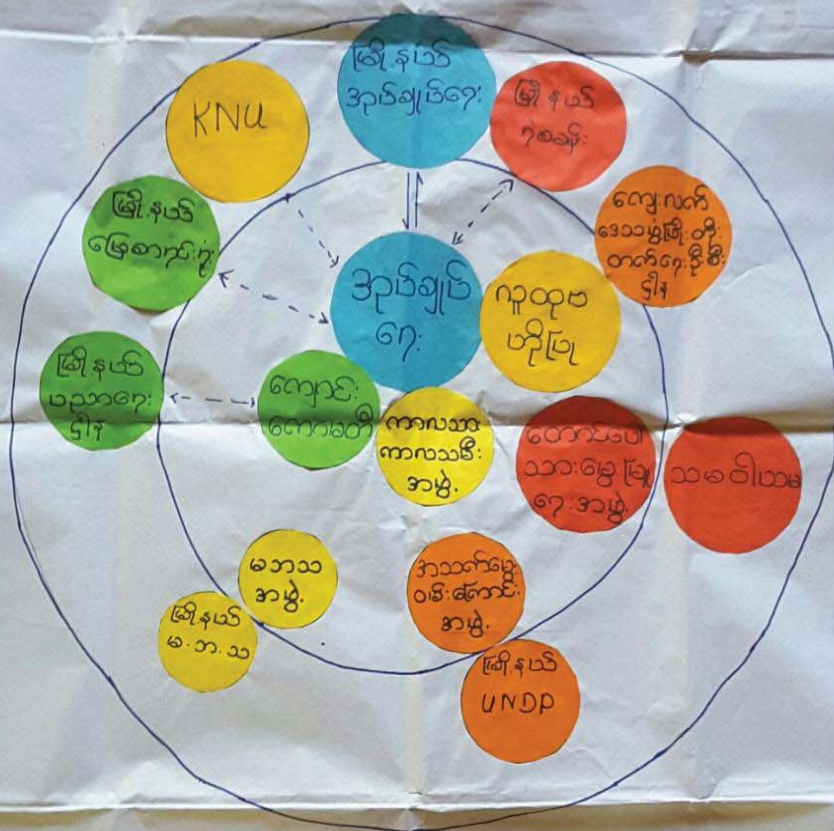 မြို့နယ်
အုပ်ချုပ်ရေး
KNU
မြို့နယ်
ရဲစခန်း
မြို့နယ်
မြေစာရင်းရုံး
ကျေးလက်
ဒေသဖွံ့ဖြိုးတိုး
တက်ရေးဦးစီး
ဌာန
အုပ်ချုပ်
ရေး
လူထုဗ
ဟိုပြု
မြို့နယ်
ပညာရေး
ဌာန
ကျောင်း
ကော်မတီ
ကာလသား
ကာလသမီး
အဖွဲ့
သားမွေးမြူ
ရေးအဖွဲ့
သမဝါယမ
မဘသ
အဖွဲ့
မြို့နယ်
မ.ဘ.သ
အသက်မွေး
ဝမ်းကျောင်း
အဖွဲ့
မြို့နယ်
UNDP